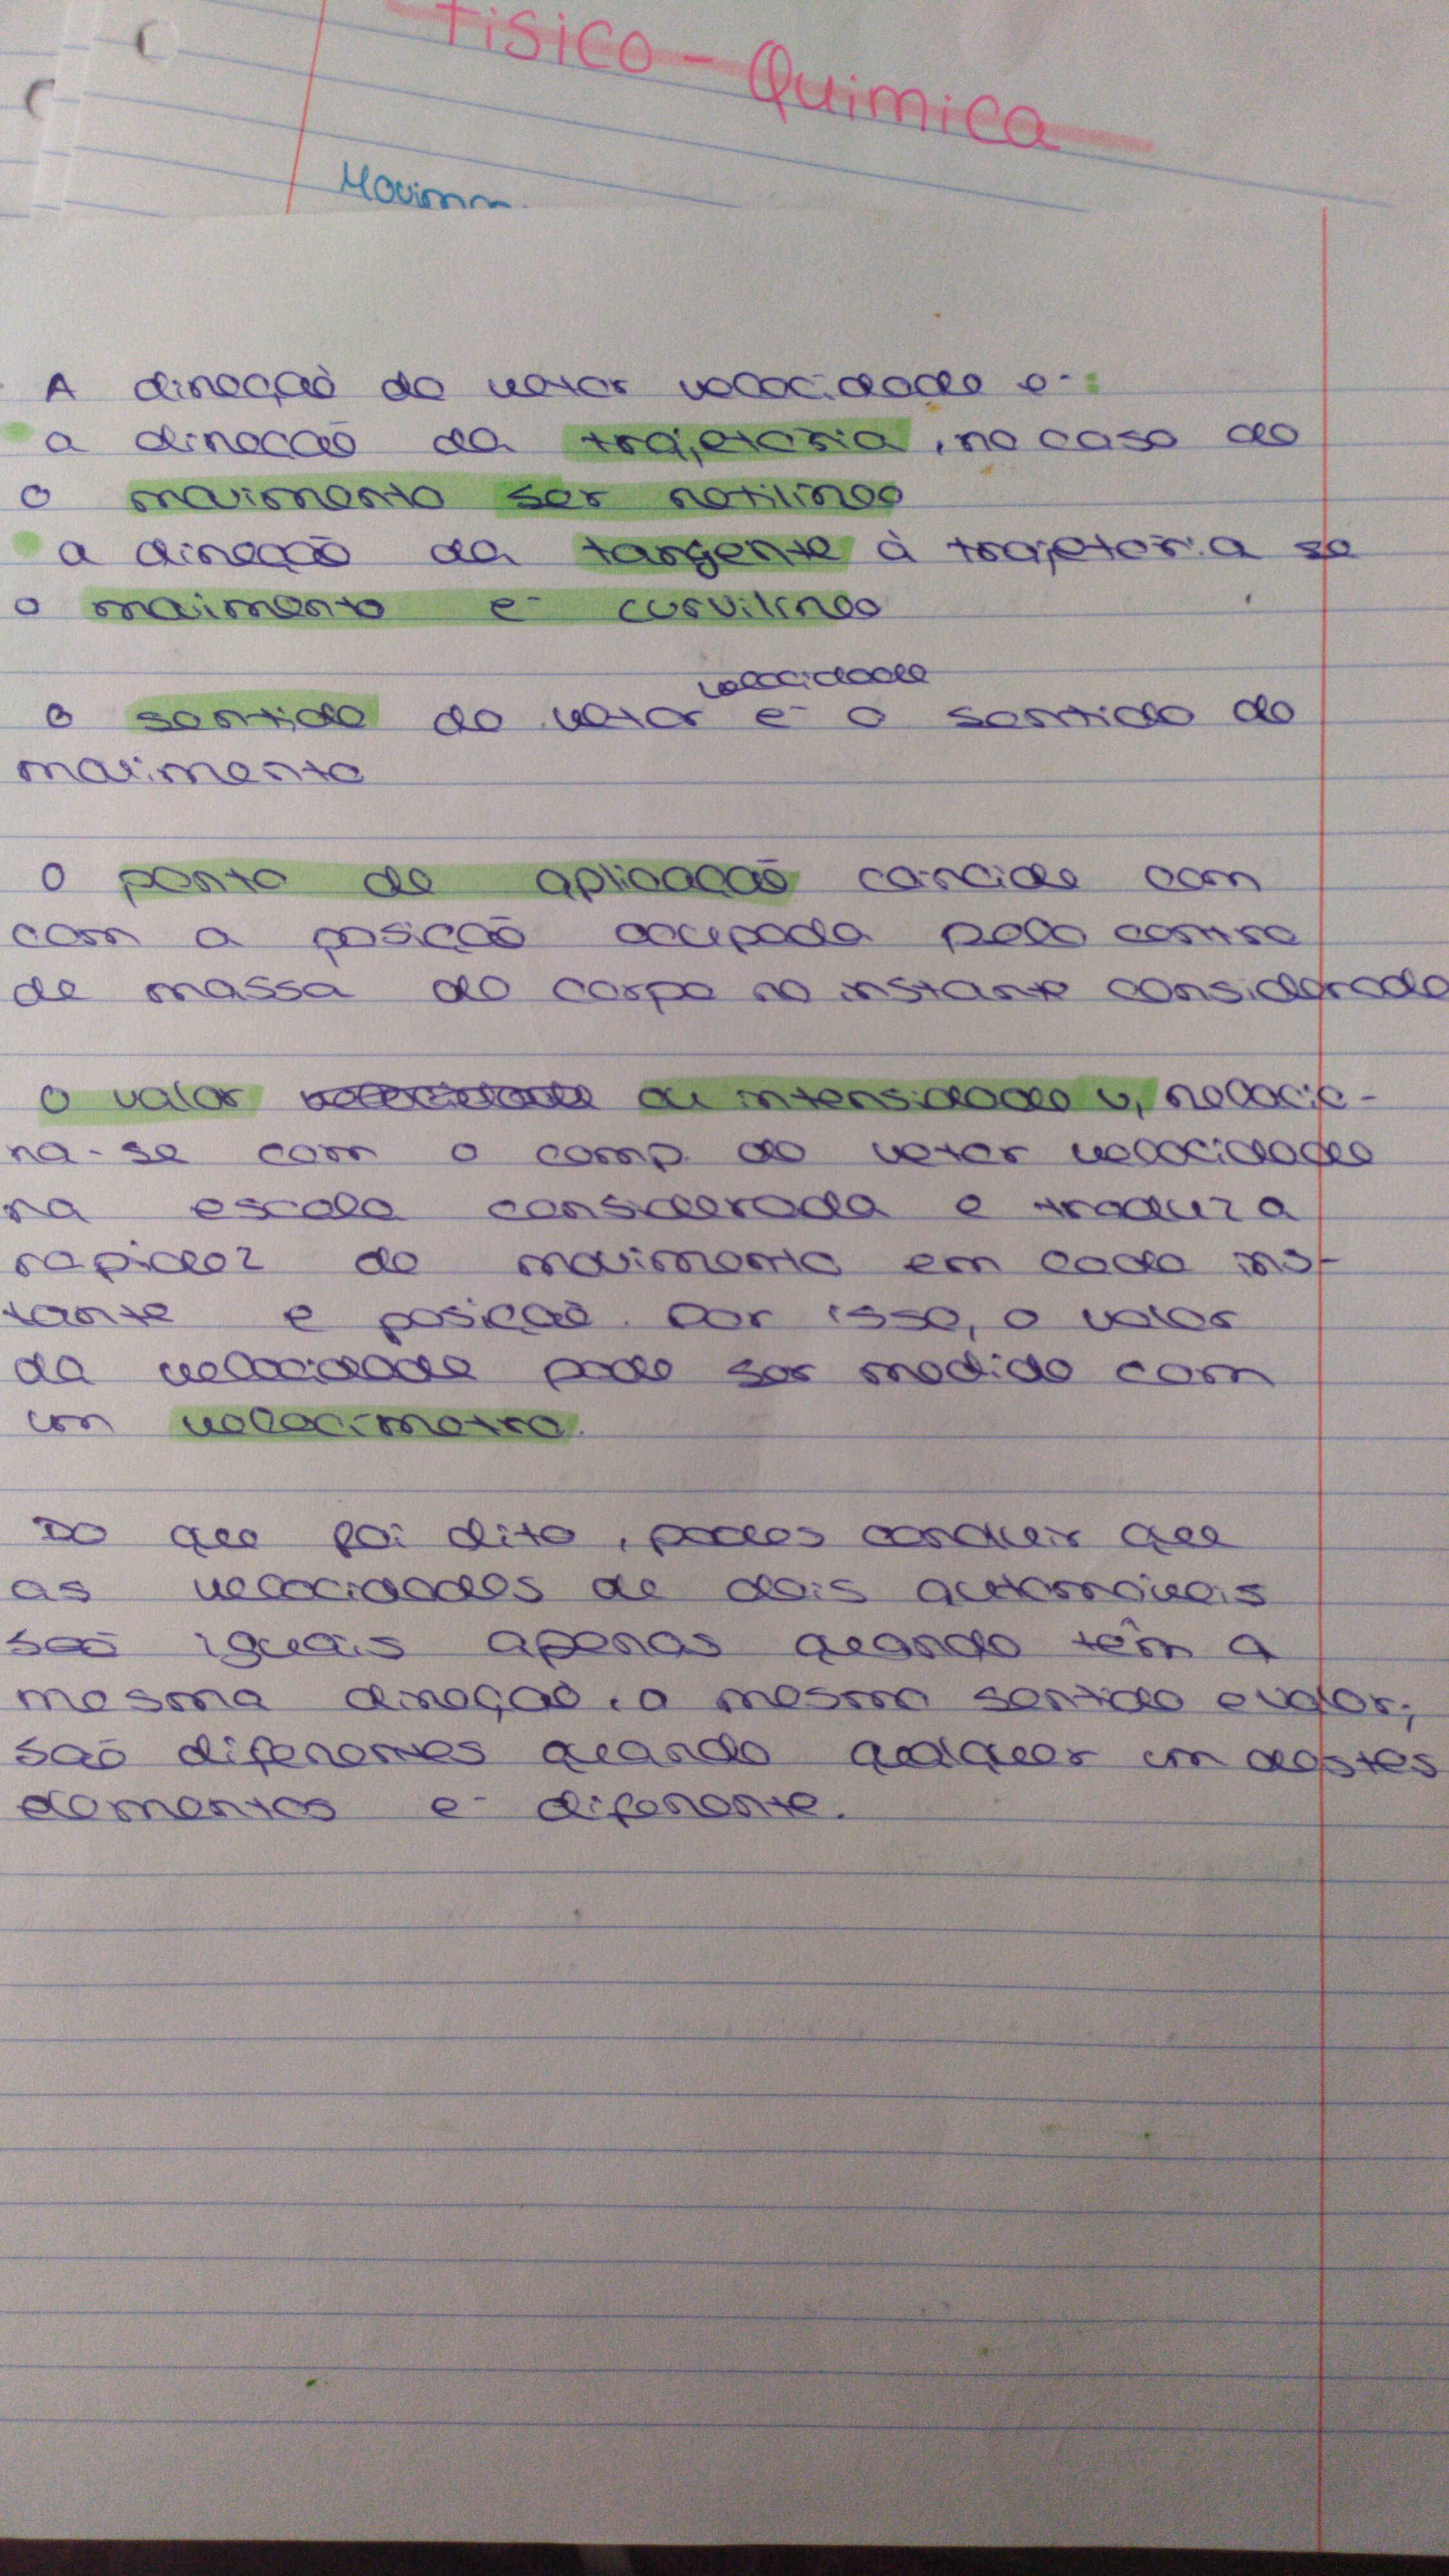 Fisico-Quimica
A direção do vetor velocidade é:
a direcção da trajetória, no caso do
o movimento ser retilíneo
a direcção da tangente à trajetoria se
o movimento é curvilíneo
velocidade
O sentido do vetor é o sentido do
movimento
O ponto de aplicação coincide com
com a posição ocupada pelo centro
de massa do corpo no instante considerado
O valor ou intensidade v, relacio-
na-se com o comp. do vetor velocidade
na escala considerada e traduz a
rapidez do movimento em cada ins-
tante e posição. Por isso, o valor
da velocidade pode ser medido com
um velocimetro.
Do que foi dito, podes concluir que
as velocidades de dois automóveis
são iguais apenas quando têm a
mesma direção, o mesmo sentido e valor;
são diferentes quando qualquer um destes
elementos é diferente.